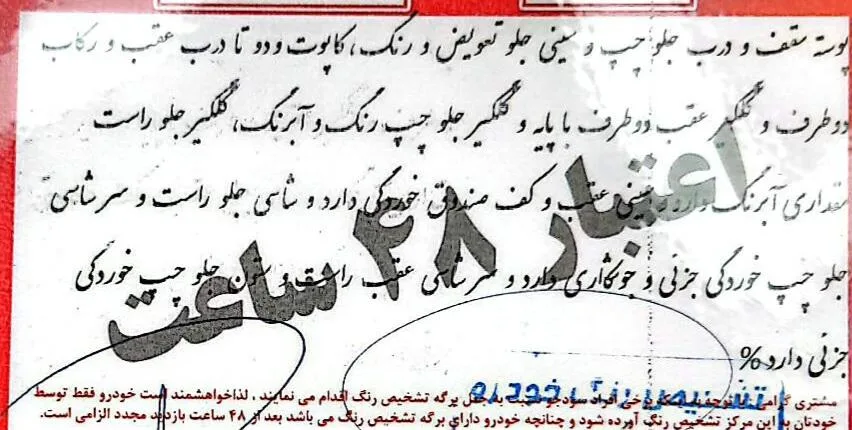 پوسته سقف و درب جلو چپ و سینی جلو تعویض و رنگ، کاپوت و دو تا درب عقب و رکاب
دو طرف و گلگیر عقب دو طرف با پایه و گلگیر جلو چپ رنگ و آبرنگ، گلگیر جلو راست
مقداری آبرنگ دارد و سینی عقب و کف صندوق خوردگی دارد و شاسی جلو راست و سر شاسی
جلو چپ خوردگی جزئی و جوشکاری دارد و سر شاسی عقب راست و ستون جلو چپ خوردگی
جزئی دارد%
اعتبار ۴۸ ساعت
تشخیص رنگ خودرو
مشتری گرامی با توجه به اینکه برخی افراد سودجو نسبت به جعل برگه تشخیص رنگ اقدام می نمایند ، لذا خواهشمند است خودرو فقط توسط
خودتان به این مرکز تشخیص رنگ آورده شود و چنانچه خودرو دارای برگه تشخیص رنگ می باشد بعد از ۴۸ ساعت بازدید مجدد الزامی است.